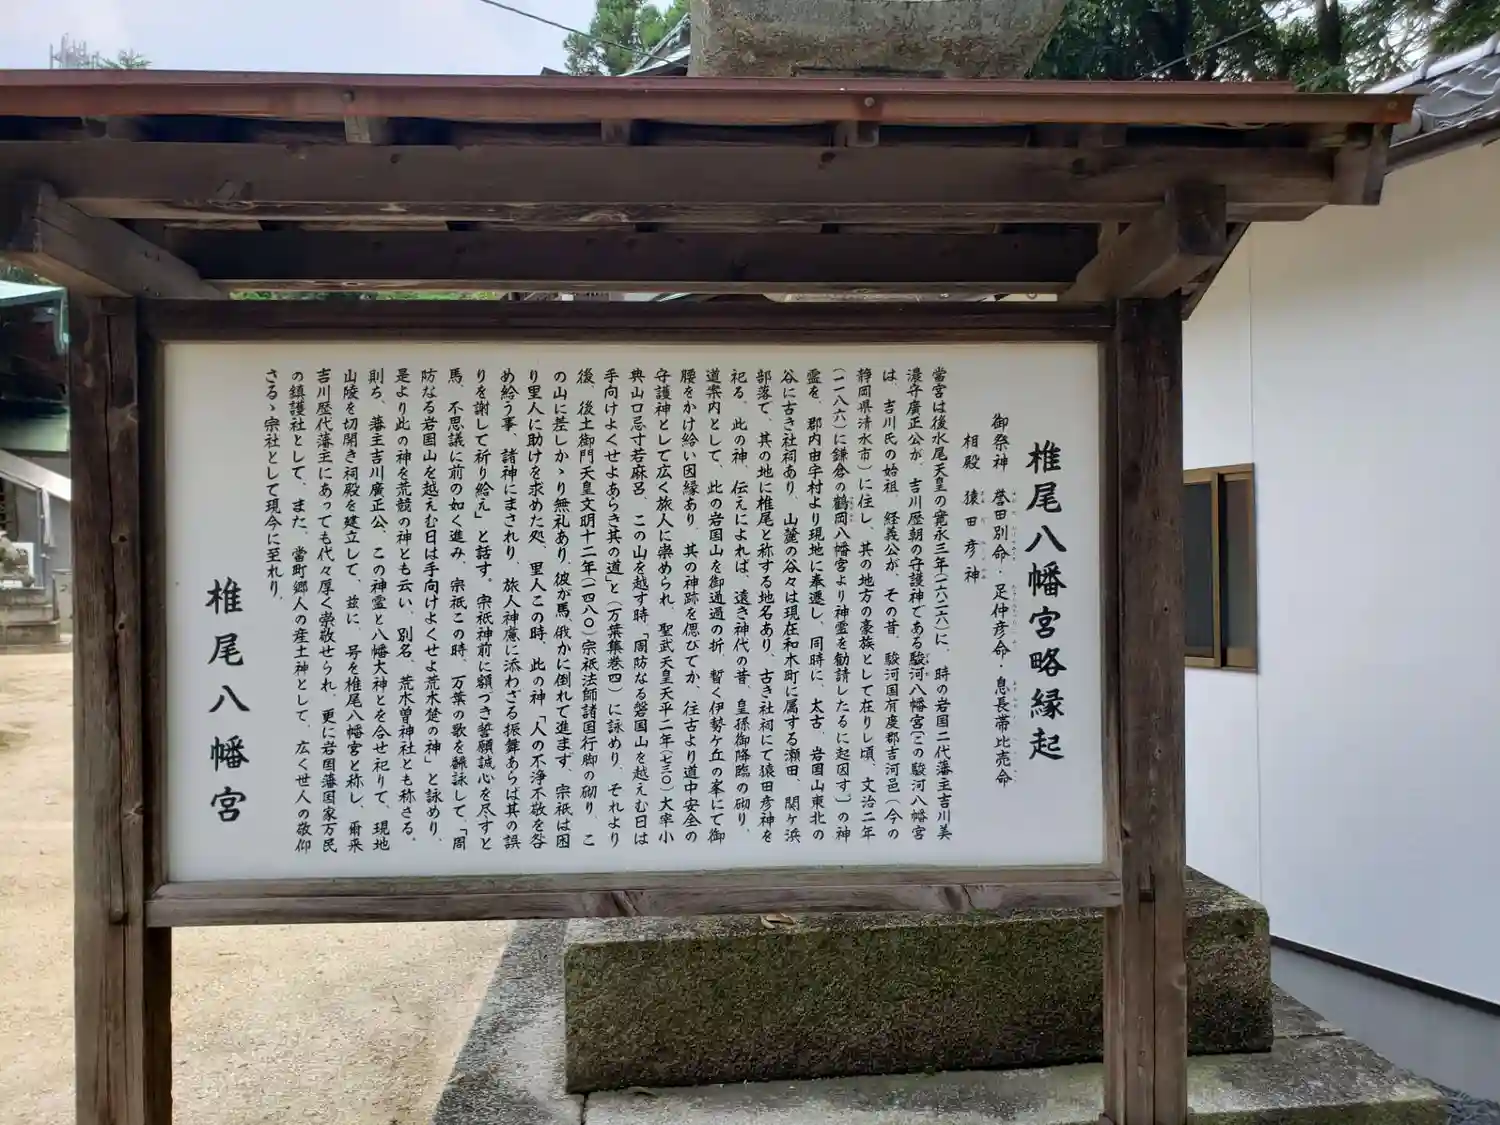 椎尾八幡宮略縁起
御祭神　誉田別命・足仲彦命・息長帯比売命
相殿　猿田彦神
當宮は後水尾天皇の寛永三年(一六二六)に、時の岩国二代藩主吉川美
濃守廣正公が、吉川歴朝の守護神である駿河八幡宮〔この駿河八幡宮
は、吉川氏の始祖、経義公が、その昔、駿河国有度郡吉河邑(今の
静岡県清水市)に住し、其の地方の豪族として在りし頃、文治二年
(一一八六)に鎌倉の鶴岡八幡宮より神霊を勧請したるに起因す。〕の神
霊を、郡内由宇村より現地に奉遷し、同時に、太古、岩国山東北の
谷に古き社祠あり、山麓の谷々は現在和木町に属する瀬田、関ヶ浜
部落で、其の地に椎尾と称する地名あり、古き社祠にて猿田彦神を
祀る。此の神、伝えによれば、遠き神代の昔、皇孫御降臨の砌り、
道案内として、此の岩国山を御通過の折、暫く伊勢ヶ丘の峯にて御
腰をかけ給い因縁あり、其の神跡を偲びてか、往古より道中安全の
守護神として広く旅人に崇められ、聖武天皇天平二年(七三〇)大宰小
典山口忌寸若麻呂、この山を越す時、「周防なる磐国山を越えむ日は
手向けよくせよあらき其の道」と(万葉集巻四)に詠めり、それより
後、後土御門天皇文明十二年(一四八〇)宗祇法師諸国行脚の砌り、こ
の山に差しかゝり無礼あり、彼が馬、俄かに倒れて進まず、宗祇は困
り里人に助けを求めた処、里人この時、此の神「人の不浄不敬を咎
め給う事、諸神にまされり、旅人神慮に添わざる振舞あらば其の誤
りを謝して祈り給え」と話す。宗祇神前に額づき誓願誠心を尽すと
馬、不思議に前の如く進み、宗祇この時、万葉の歌を飜詠して、「周
防なる岩国山を越えむ日は手向けよくせよ荒木楚の神」と詠めり、
是より此の神を荒競の神とも云い、別名、荒木曽神社とも称さる。
則ち、藩主吉川廣正公、この神霊と八幡大神とを合せ祀りて、現地
山陵を切開き祠殿を建立して、茲に、号を椎尾八幡宮と称し、爾来
吉川歴代藩主にあっても代々厚く崇敬せられ、更に岩国藩国家万民
の鎮護社として、また、當町郷人の産土神として、広く世人の敬仰
さるゝ宗社として現今に至れり。
椎尾八幡宮